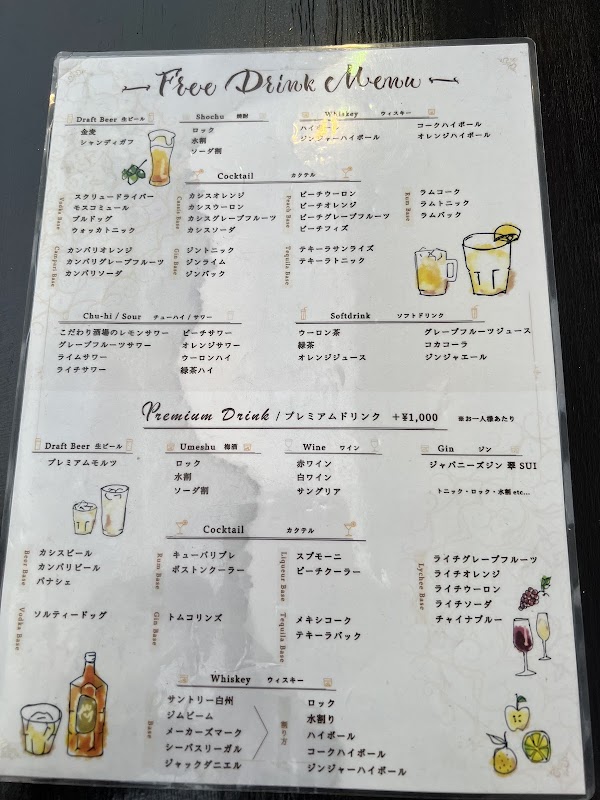 Free Drink Menu
Draft Beer 生ビール
金麦
シャンディガフ
Shochu 焼酎
ロック
水割
ソーダ割
Whiskey ウィスキー
ハイ
ジンジャーハイボール
コークハイボール
オレンジハイボール
Cocktail カクテル
Vodka Base
スクリュードライバー
モスコミュール
ブルドッグ
ウォッカトニック
Cassis Base
カシスオレンジ
カシスウーロン
カシスグレープフルーツ
カシスソーダ
Peach Base
ピーチウーロン
ピーチオレンジ
ピーチグレープフルーツ
ピーチフィズ
Rum Base
ラムコーク
ラムトニック
ラムバック
Campari Base
カンパリオレンジ
カンパリグレープフルーツ
カンパリソーダ
Gin Base
ジントニック
ジンライム
ジンバック
Tequila Base
テキーラサンライズ
テキーラトニック
Chu-hi / Sour チューハイ / サワー
こだわり酒場のレモンサワー
グレープフルーツサワー
ライムサワー
ライチサワー
ピーチサワー
オレンジサワー
ウーロンハイ
緑茶ハイ
Softdrink ソフトドリンク
ウーロン茶
緑茶
オレンジジュース
グレープフルーツジュース
コカコーラ
ジンジャエール
Premium Drink / プレミアムドリンク +¥1,000 ※お一人様あたり
Draft Beer 生ビール
プレミアムモルツ
Umeshu 梅酒
ロック
水割
ソーダ割
Wine ワイン
赤ワイン
白ワイン
サングリア
Gin ジン
ジャパニーズジン 翠 SUI
トニック・ロック・水割 etc...
Cocktail カクテル
Beer Base
カシスビール
カンパリビール
パナシェ
Rum Base
キューバリブレ
ボストンクーラー
Liqueur Base
スプモーニ
ピーチクーラー
Lychee Base
ライチグレープフルーツ
ライチオレンジ
ライチウーロン
ライチソーダ
チャイナブルー
Vodka Base
ソルティードッグ
Gin Base
トムコリンズ
Tequila Base
メキシコーク
テキーラバック
Whiskey ウィスキー
Base
サントリー白州
ジムビーム
メーカーズマーク
シーバスリーガル
ジャックダニエル
割り方
ロック
水割り
ハイボール
コークハイボール
ジンジャーハイボール